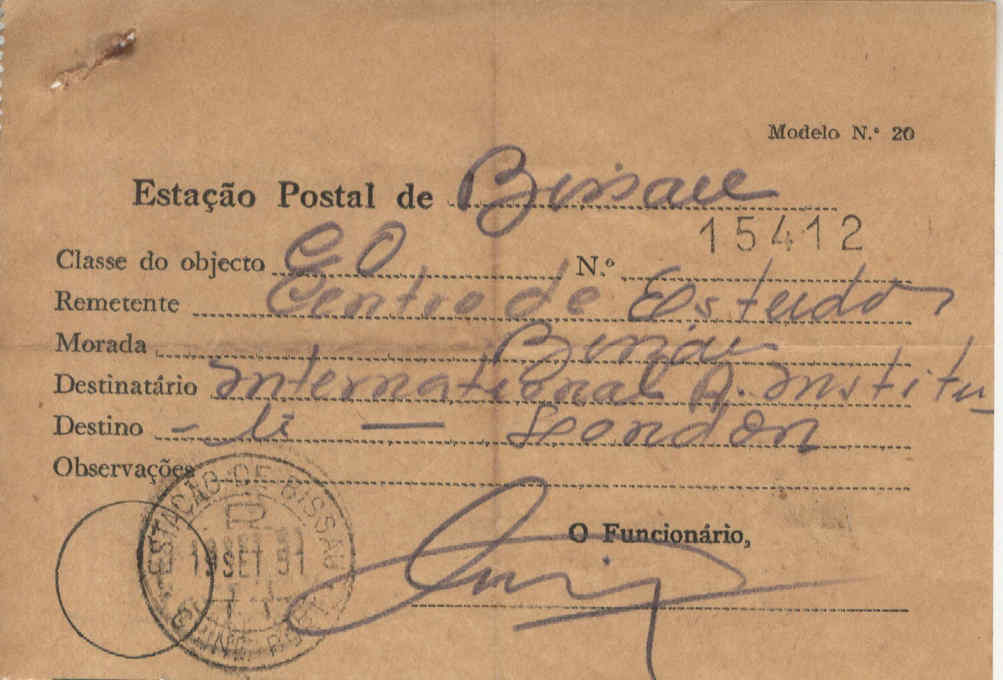 Modelo N.º 20
Estação Postal de Bissau
15412
Classe do objecto CO N.º
Remetente Centro de Estudos
Morada Bissau
Destinatário International A. Institu
Destino - te — London
Observações
ESTAÇÃO DE BISSAU
R
19 SET. 51
GUINÉ PORT.
O Funcionário,